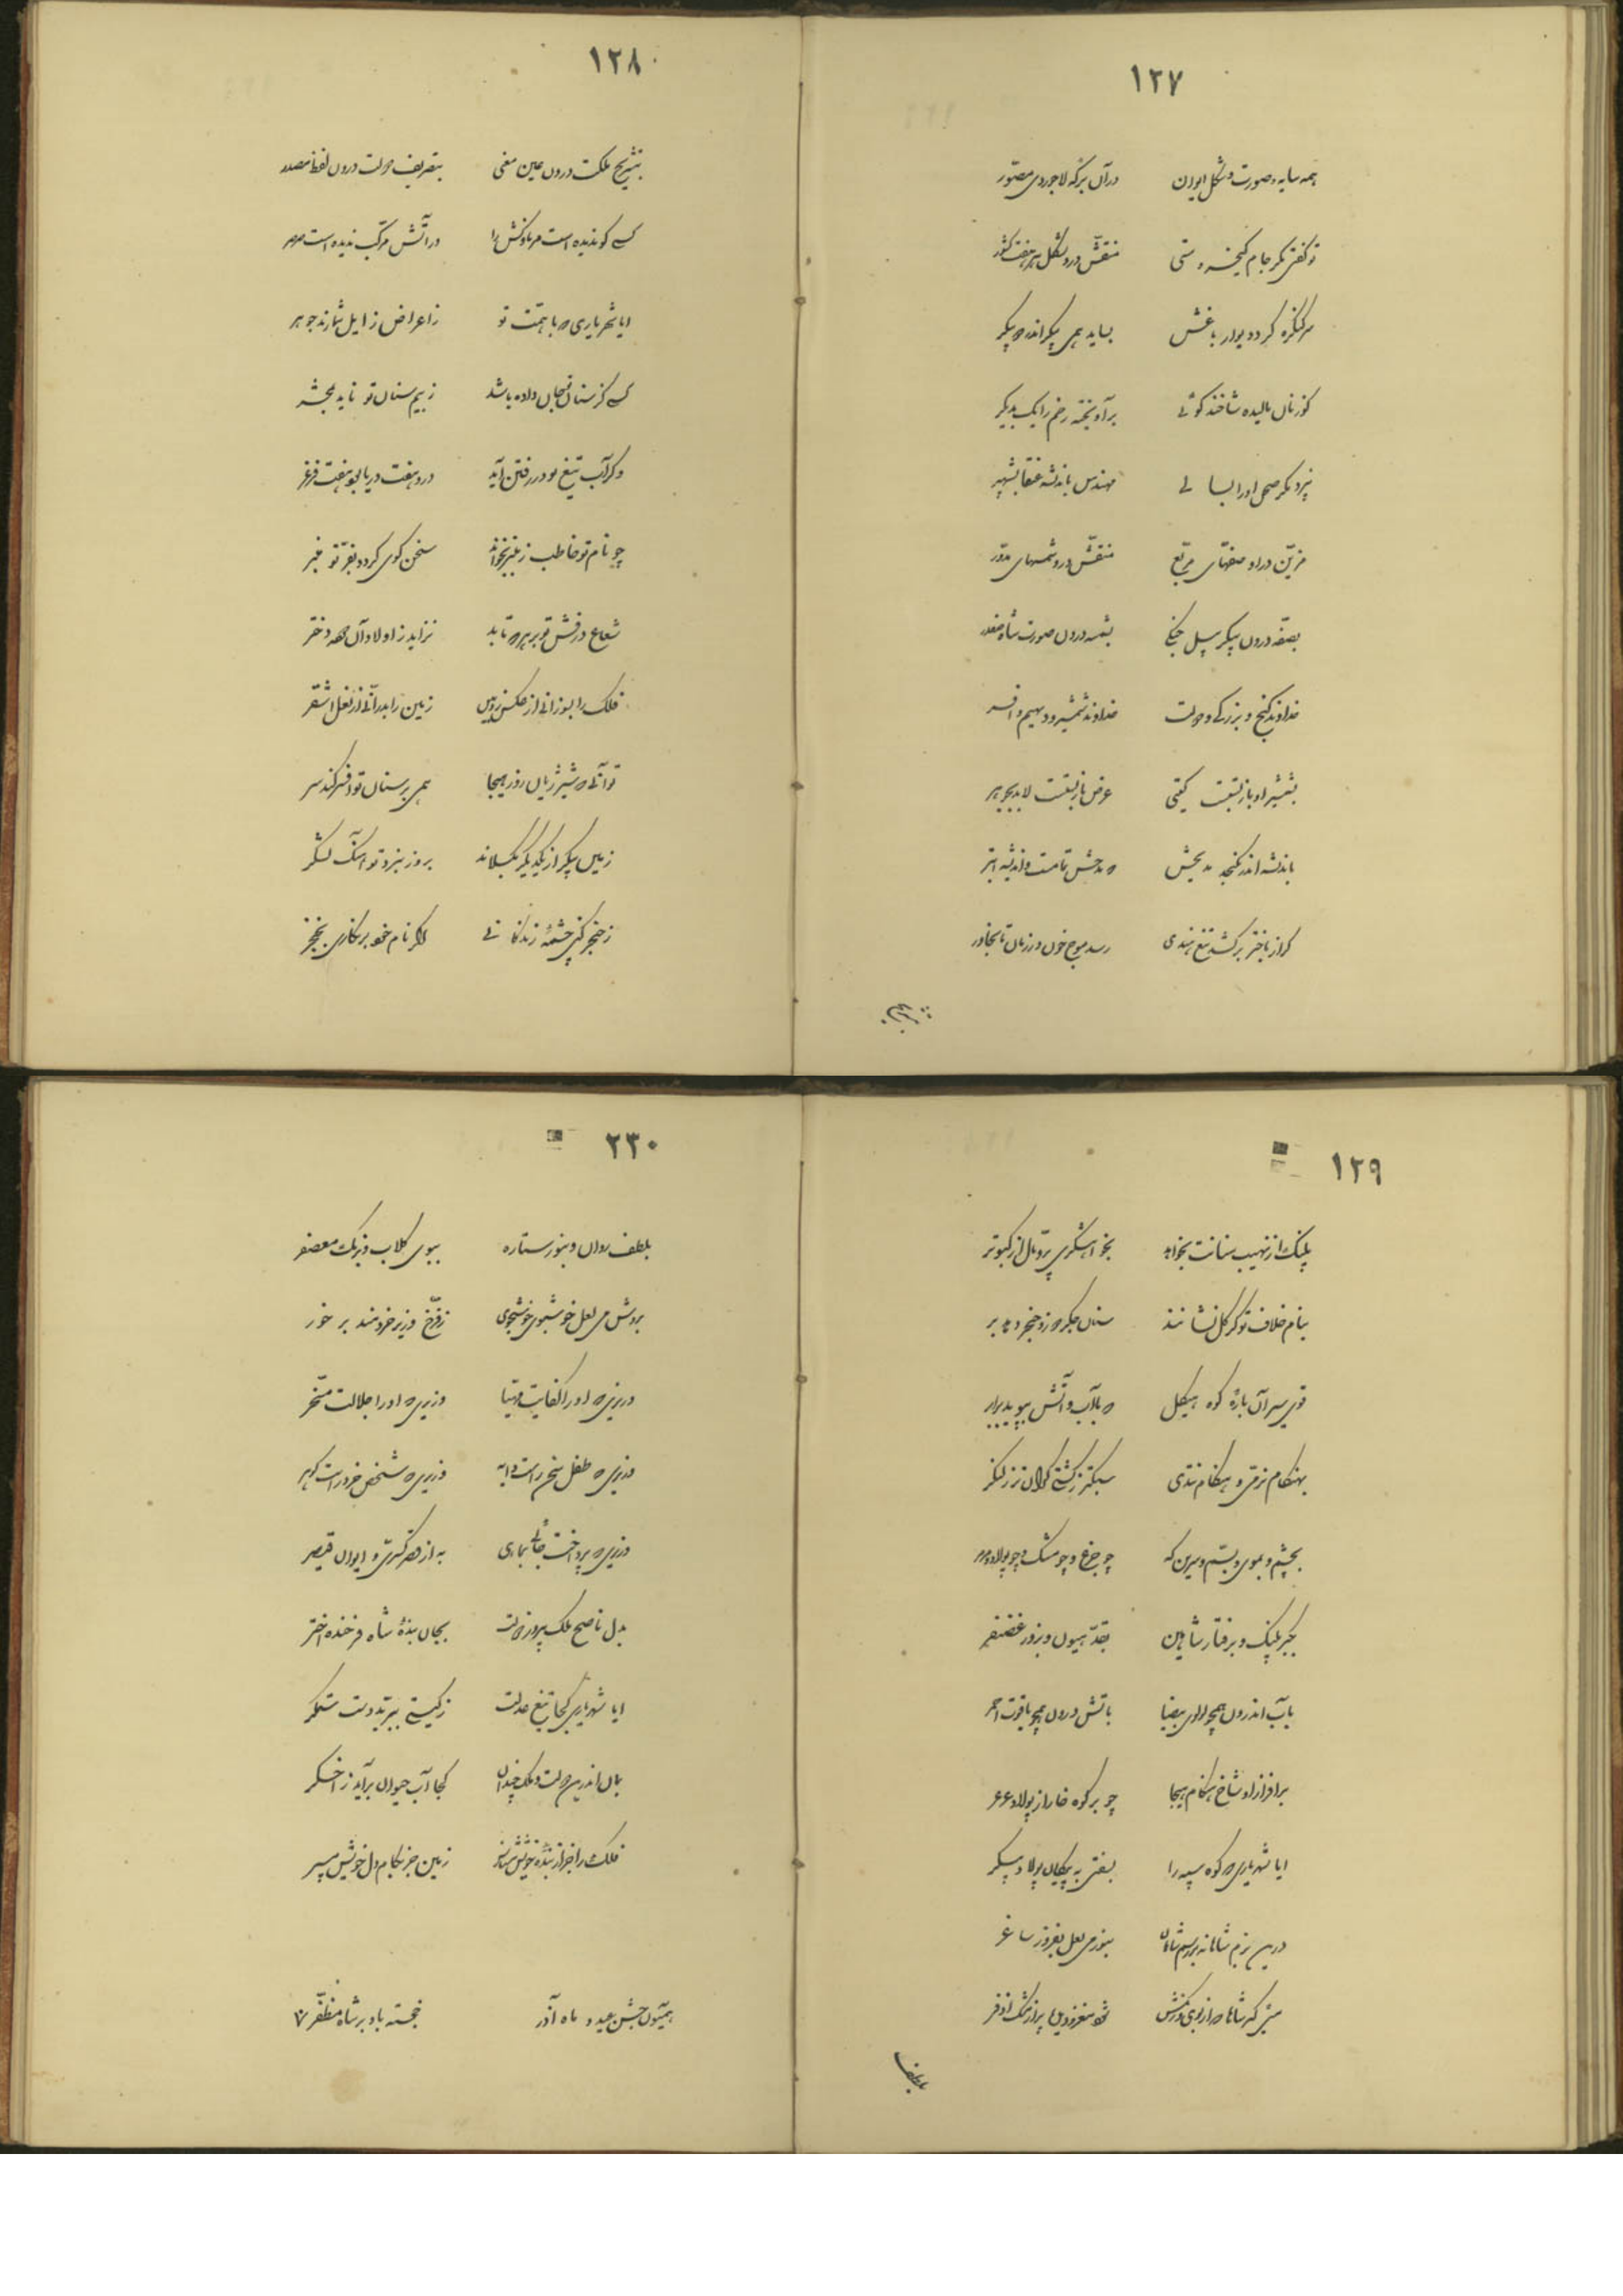 ۱۲۷
همه سایه و صورت و شکل ایوان در آن برکه لاجوردی مصور
تو گفتی مگر جام کیخسروستی منقش درو شکل هر هفت کشور
سر کنگره گرد دیوار باغش بساید همی پیکر اندر دو پیکر
گوزنان بالیده شاخند گوئی برآویخته رخم را یک بدیگر
نپرد مگر صحن او را بسالی مهندس باندیشه عنقا بشهپر
مزین در او صفهای مربع منقش درو شمسهای مدور
بصفه درون پیکر پیل جنگی بشمسه درون صورت شاه صفدر
خداوند گنج و بزرگی و دولت خداوند شمشیر و دیهیم و افسر
بشمشیر او باز بستست گیتی عرض باز بستست لابد بجوهر
باندیشه اندر نگنجد مدیحش که مدحش تمامست و اندیشه ابتر
گر از باختر برکشد تیغ هندی رسد موج خون در زمان تا بخاور
۱۲۸
بتشریح ملکت درون عین معنی بتصریف دولت درون لفظ مصدر
کسی کو ندیده است مر ناوکش را در آتش مرکب ندیده است صرصر
ایا شهریاری که با همت تو ز اعراض زایل شمارند جوهر
کسی کز سنان تو جان داده باشد ز بیم سنان تو ناید بمحشر
وگر آب تیغ تو در رفتن آید درو هفت دریا بود هفت فرغر
چو نام تو خاطب ز منبر بخواند سخن گوی گردد بفر تو منبر
شعاع درفش تو بر هر که تابد نزاید ز اولاد آن دوده دختر
فلک را بسوزانی از عکس زوبین زمین را بدرانی از نعل اشقر
تو آنی که شیر ژیان روز هیجا همی بر سنان تو افسر کند سر
زمین پیکر از یکدیگر بگسلاند بروز نبرد تو از بانگ لشکر
ز خنجر کنی چشمه زندگانی اگر نام خود بر نگاری بخنجر
۱۲۹
پلنگ از نهیب سنانت بخواهد بخواهشگری پر و بال از کبوتر
بنام خلاف تو گر گل نشانند سنان جگر دوز و خنجر دهد بر
قوی سر آن باره کوه هیکل که با آب و آتش بپوید برابر
بهنگام نرمی و هنگام تندی سبکتر ز کشتی گران تر ز لنگر
بچشم و بموی و بسم و سرین که چو جزع و چو مشک و چو پولاد و مرمر
بکبر پلنگ و برفتار شاهین بقد هیون و بزور غضنفر
بآب اندرون همچو لولوی بیضا بآتش درون همچو یاقوت احمر
بر افراز او شاخ هنگام هیجا چو بر کوه خارا ز پولاد عرعر
ایا شهریاری که کوه سیه را بسفتی به پیکان پولاد پیکر
درین بزم شاهانه بر رسم شاهان بنور می لعل بفروز ساغر
می گر شاها که از بوی و رنگش شود مغز و دیده پر از مشک اذفر
بلطف
۲۳۰
بلطف روان و بنور ستاره ببوی گلاب و برنگ معصفر
بروش می لعل خوشبوی خوشخوی ز فرخ وزیر خردمند بر خور
وزیری که او را کفایت مهیا وزیری که او را جلالت مسخر
وزیری که طفل سخن راست دایه وزیری که شخص خرد راست گوهر
وزیری که پرداخت جائی بماری به از قصر کسری و ایوان قیصر
بدل ناصح ملک پیروز دولت بجان بنده شاه فرخنده اختر
ایا شهریاری کجا تیغ عدلت ز گیتی ببرید دست ستمگر
بمان اندرین دولت و ملک چندان کجا آب حیوان برآید ز اخگر
فلک را جز از بنده خویش مشناس زمین جز بکام دل خویش مسپر
همیون جشن عید و ماه آذر خجسته باد بر شاه مظفر